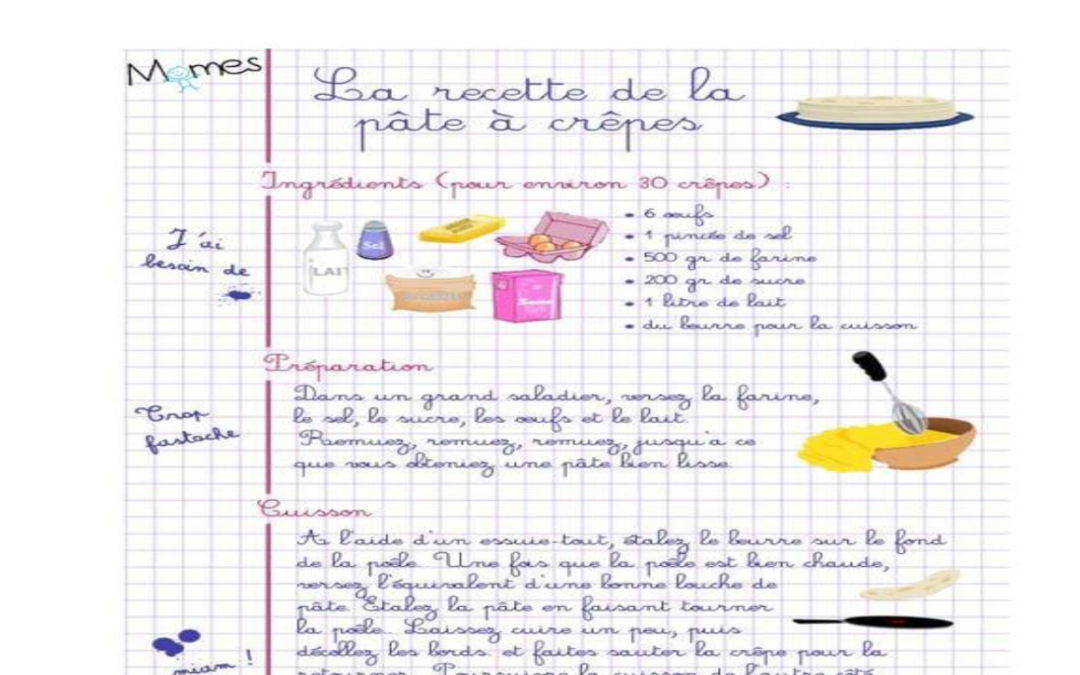 Momes
La recette de la
pâte à crêpes
Ingrédients (pour environ 30 crêpes) :
J'ai
besoin de
LAIT
Sel
• 6 œufs
• 1 pincée de sel
• 500 gr de farine
• 200 gr de sucre
• 1 litre de lait
• du beurre pour la cuisson
Préparation
Trop
fastoche
Dans un grand saladier, versez la farine,
le sel, le sucre, les œufs et le lait.
Remuez, remuez, remuez, jusqu'a ce
que vous obteniez une pâte bien lisse.
Cuisson
A l'aide d'un essuie-tout, étalez le beurre sur le fond
de la poêle. Une fois que la poêle est bien chaude,
versez l'équivalent d'une bonne louche de
pâte. Etalez la pâte en faisant tourner
la poêle. Laissez cuire un peu, puis
décollez les bords et faites sauter la crêpe pour la
retourner. Poursuivre la cuisson de l'autre côté
miam !